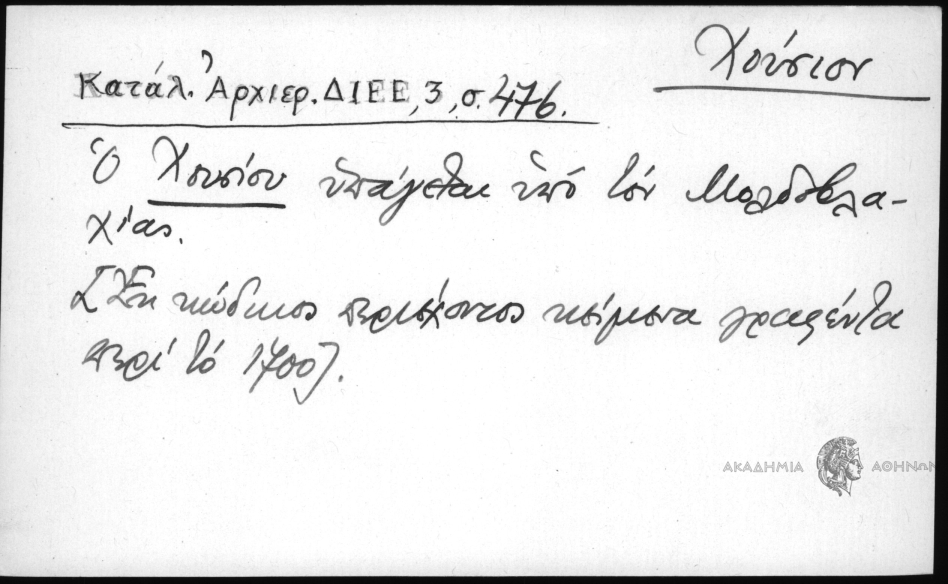 Χούσιον
Κατάλ. Ἀρχιερ. ΔΙΕΕ, 3, σ. 476.
Ὁ Χουσίου ὑπάγεται ὑπό τόν Μολδοβλα-
χίας.
[Ἐκ κώδικος περιέχοντος κείμενα γραφέντα
περί τό 1700].
ΑΚΑΔΗΜΙΑ ΑΘΗΝΩΝ